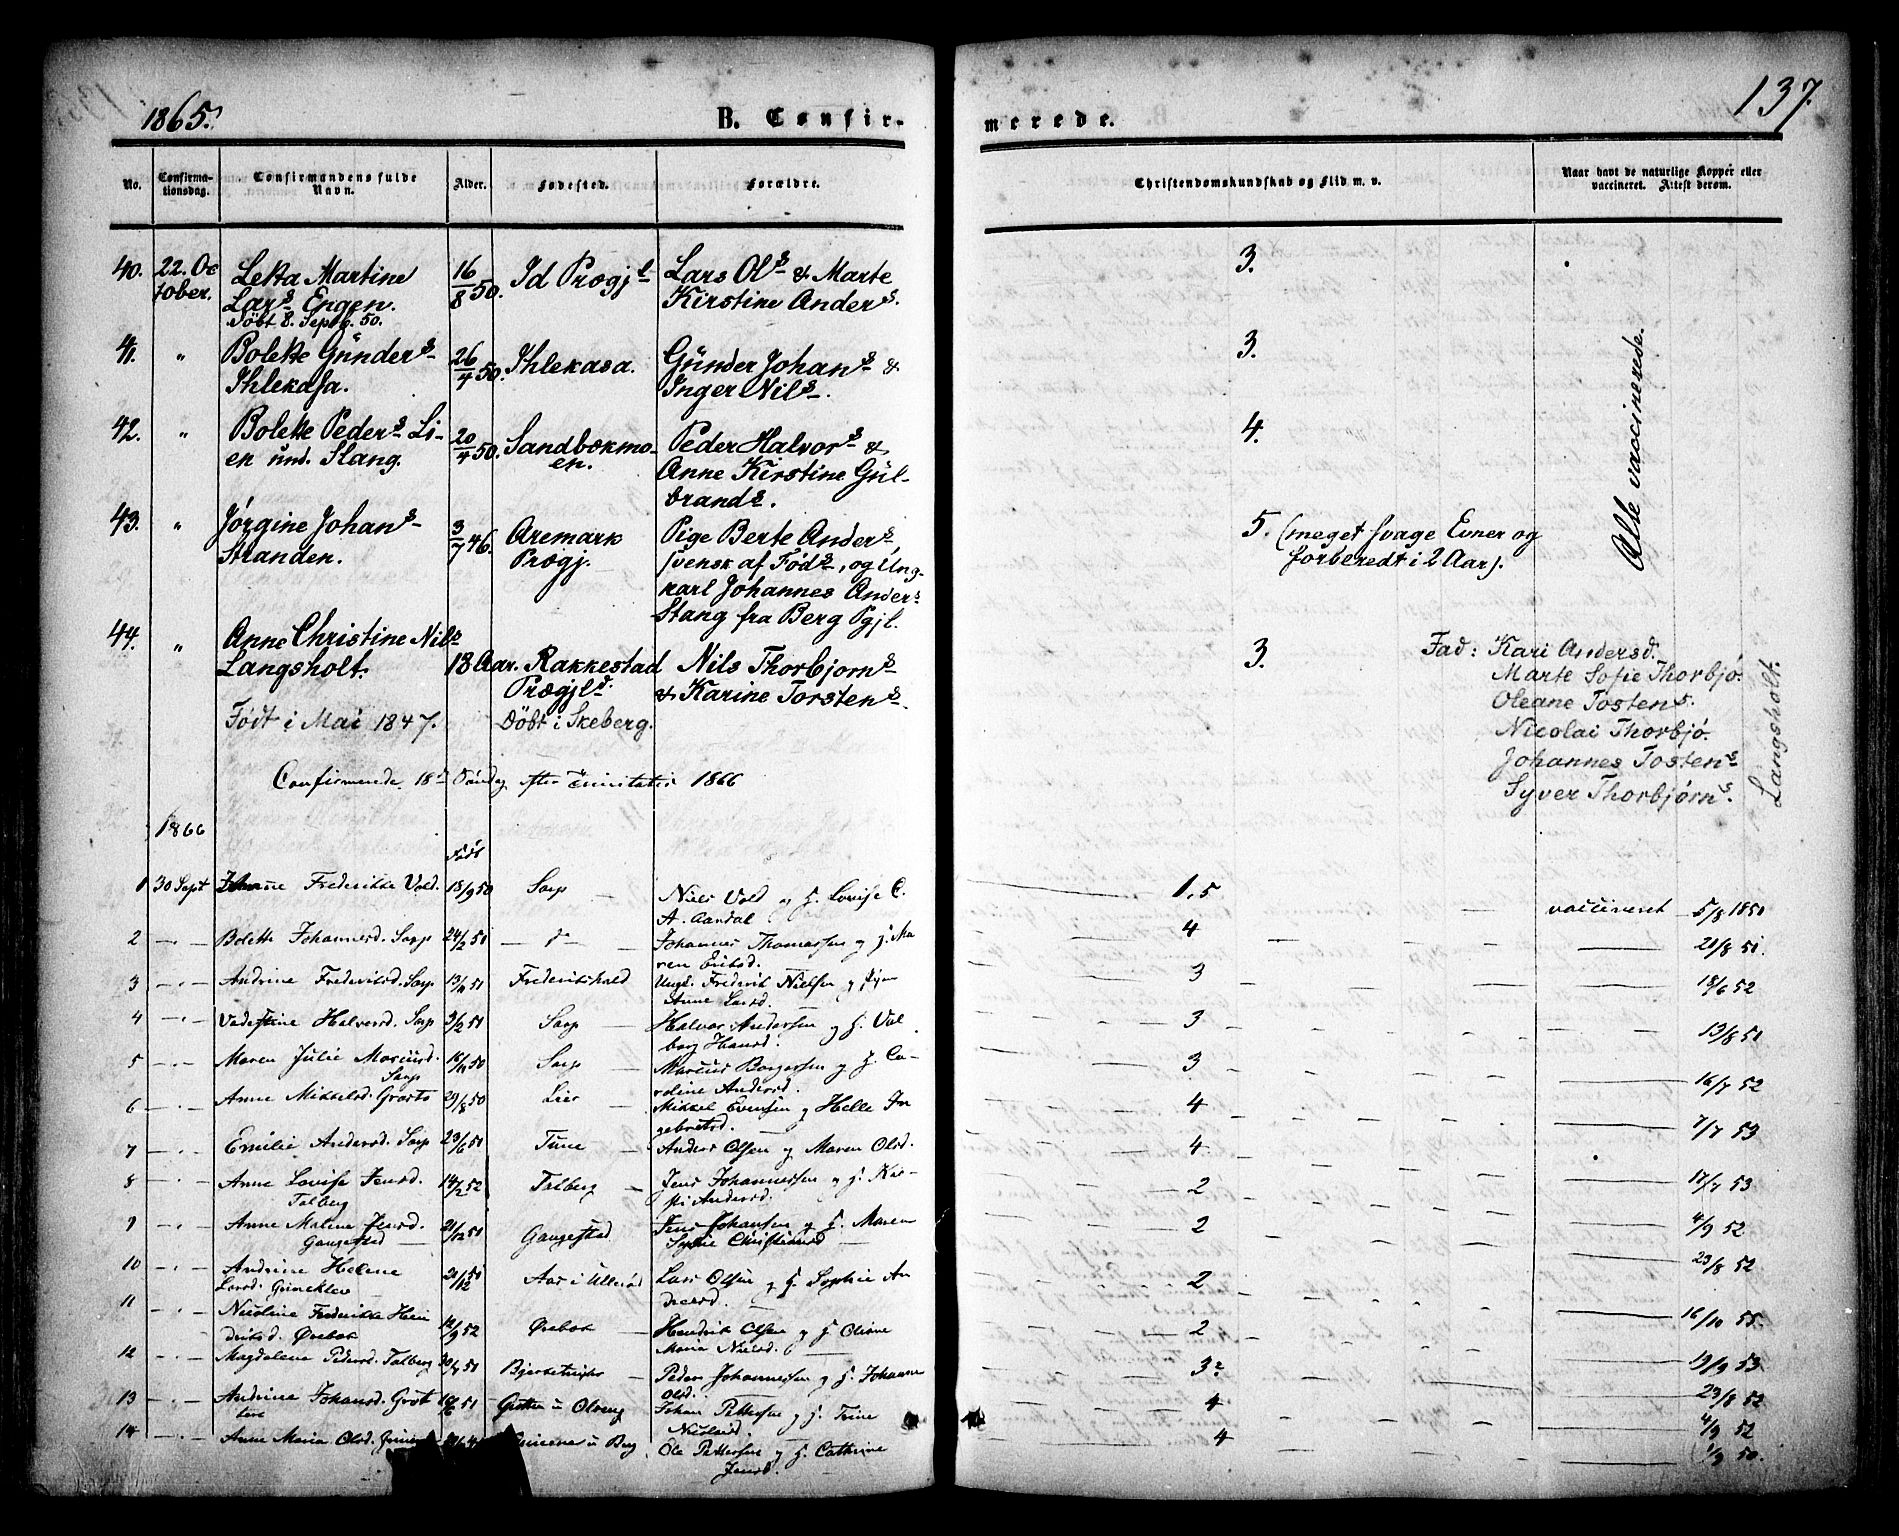 1865.
B. Confir-
merede.
137.
No.
Confirma-
tionsdag.
Confirmandens fulde
Navn.
Alder.
Fødested.
Forældre.
Christendomskundskab og Flid m. v.
Naar havt de naturlige Kopper eller
vaccineret. Attest derom.
40. 22. Oc
tober.
Letta Martine
Lars Engen.
Döbt 8. Septb. 50.
16/8 50.
Id PræGj l
Lars Ols & Marte
Kirstine Anders.
3.
41. "
Bolette Günders
Ihlekasa.
26/4 50.
Ihlekasa.
Günder Johans &
Inger Nils.
3.
42. "
Bolette Peders Li-
en und. Stang.
20/4 50.
Sandbækmo-
en.
Peder Halvors &
Anne Kirstine Gül-
brands.
4.
43. "
Jørgine Johans
Stranden.
3/7 46.
Aremark
Prægj.
Pige Berte Anders
svensk af Føds, og Ung-
karl Johannes Anders
Stang fra Berg Pgjl.
5. (meget svage Evner og
forberedt i 2 Aar).
Alle vaccinerede.
44. "
Anne Christine Nils
Langsholt.
Født i Mai 1847.
18 Aar.
Rakkestad
Prægjld.
Döbt i Skeberg.
Nils Thorbjorns
& Karine Torstens.
3.
Fad: Kari Andersd.
Marte Sofie Thorbjø.
Oleane Tostens.
Nicolai Thorbjø.
Johannes Tostens
Syver Thorbjørns.
Langsholt.
Confirmerede 18d Söndag efter Trinitatis 1866
1866
Født
1 30 Sept
Frederikke Vold. 18/9 50
Sarp
Niels Vold og H. Lovise C.
A. Aandal
1,5
vaccineret 5/8 1850
2 — " —
Bolette Johannesd. Sarp 24/2 51
— d° —
Johannes Thomassen og H. Ma
ren Eriksd.
4
20/8 51.
3 — " —
Andrine Frederiksd. Sarp 13/11 51
Frederikshald
Ungk. Frederik Nielsen og Pigen
Anne Larsd.
3
18/6 52
4 — " —
Halvorsd. Sarp 3/2 51
Sarp
Halvor Andersen og H. Val
borg Hansd.
3
13/8 51
5 — " —
Maren Julie Mariusd.
Sarp
16/11 50
Sarp
Marius Borgersen og H. Ca-
roline Andersd.
3
16/7 52
6 — " —
Anne Mikkelsd. 29/8 50
Lier
Mikkel Evensen og Helle In
gebretsd.
4
7/7 53
7 — " —
Emilie Andersd. Sarp 23/6 51
Tune
Anders Olsen og Maren Olsd.
4
8 — " —
Anne Lovise Jensd.
Talberg
14/2 52
Talberg
Jens Johannessen og H. Kar-
sti Andersd.
2
17/7 53
9 — " —
Anne Malene Jensd.
Gangestad
21/12 51
Gangestad
Jens Johansen og H. Maren
Sophie Christiansd
2
4/9 52
10 — " —
Andrine Helene
Larsd.
21/12 51
Aas i Ullerød
Lars Olsen og H. Sophie An
dersd.
2
23/8 52
11 — " —
Nicoline Frederikke Hen
driksd. Ørebæk
12/9 52
Ørebæk
Hendrik Olsen og H. Oliane
Maria Nielsd.
2
16/10 55.
12 — " —
Magdalena Pedersd. Talberg 30/7 51
Peder Johannessen og H. Johanne
Olsd.
3
19/9 53
13 — " —
Andrine Johansd.
51
Johan Pettersen og H. Trine
Nielsd.
4
23/8 52
14 — " —
Anne Maria Olsd.
Ole Pettersen og H. Cathrine
Jensd.
4
4/9 52
1/9 50.